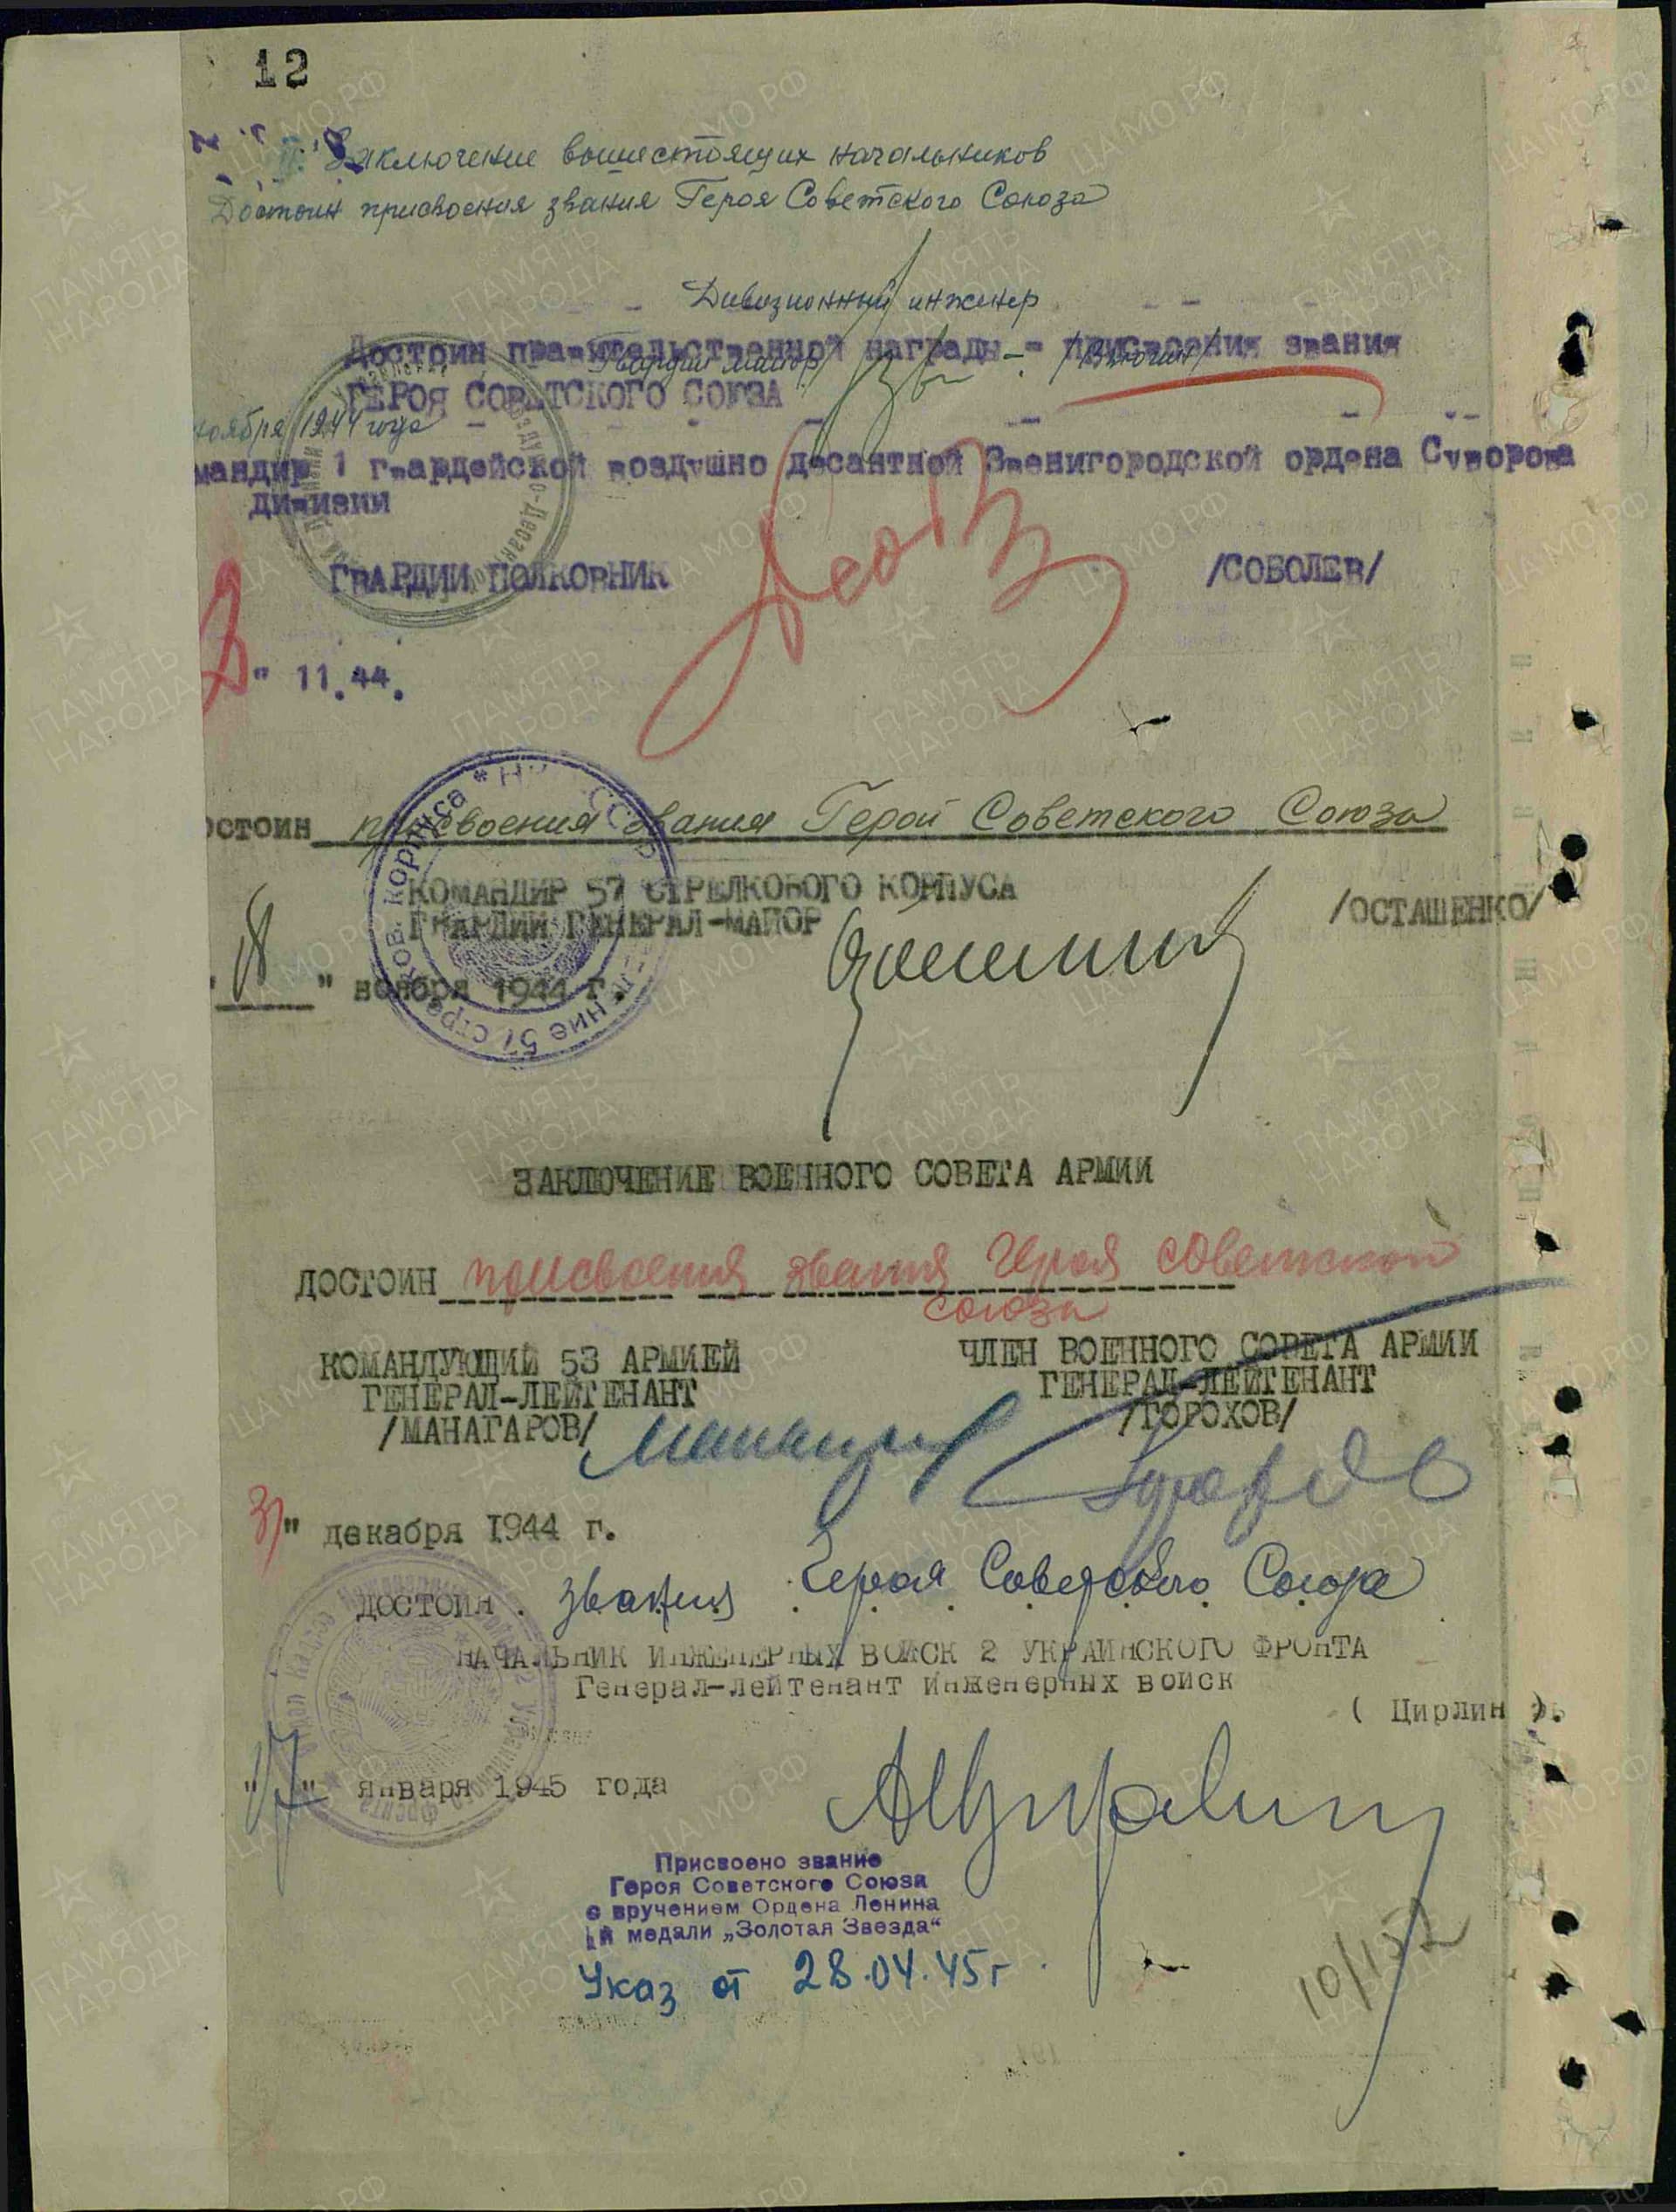 12
Заключение вышестоящих начальников
Достоин присвоения звания Героя Советского Союза
Дивизионный инженер
Гвардии майор
Достоин правительственной награды - присвоения звания
ГЕРОЯ СОВЕТСКОГО СОЮЗА
ноября 1944 года
мандир 1 гвардейской воздушно десантной Звенигородской ордена Суворова
дивизии
ГВАРДИИ ПОЛКОВНИК /СОБОЛЕВ/
" 11.44.
остоин присвоения звания Герой Советского Союза
КОМАНДИР 57 СТРЕЛКОВОГО КОРПУСА
ГВАРДИИ ГЕНЕРАЛ-МАЙОР /ОСТАШЕНКО/
"18" ноября 1944 г.
ЗАКЛЮЧЕНИЕ ВОЕННОГО СОВЕТА АРМИИ
ДОСТОИН присвоения звания Героя Советского
Союза
КОМАНДУЮЩИЙ 53 АРМИЕЙ
ГЕНЕРАЛ-ЛЕЙТЕНАНТ
/МАНАГАРОВ/
ЧЛЕН ВОЕННОГО СОВЕТА АРМИИ
ГЕНЕРАЛ-ЛЕЙТЕНАНТ
/ГОРОХОВ/
31" декабря 1944 г.
ДОСТОИН звания Героя Советского Союза
НАЧАЛЬНИК ИНЖЕНЕРНЫХ ВОЙСК 2 УКРАИНСКОГО ФРОНТА
Генерал-лейтенант инженерных войск
( Цирлин ).
"17" января 1945 года
Присвоено звание
Героя Советского Союза
с вручением Ордена Ленина
и медали „Золотая Звезда“
Указ от 28.04.45г.
ПАМЯТЬ НАРОДА
ЦАМО.РФ